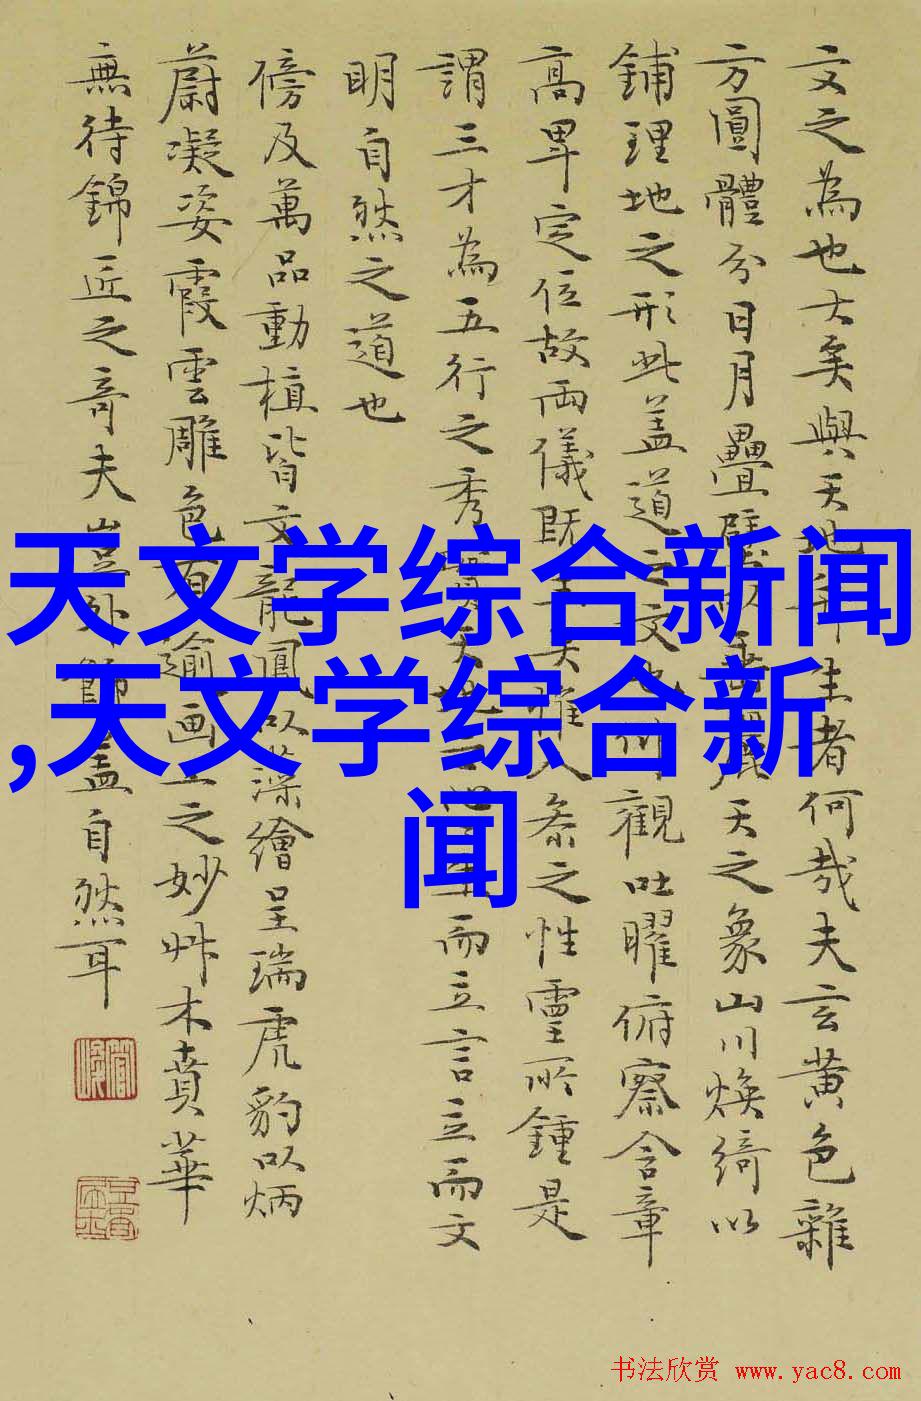 文之為也大矣與天地生者何哉夫玄黄色雜
方圓體分日月疊璧垂麗天之象山川煥綺以
鋪理地之形此盖道之文也仰觀吐曜俯察含章
高卑定位故兩儀既生矣惟人叅之性靈所鍾是
謂三才為五行之秀實天地心生而立言立而文
明自然之道也
傍及萬品動植皆文龍鳳以藻繪呈瑞虎豹以炳
蔚凝姿霞雲雕色有逾画工之妙艸木賁華
無待錦匠之奇夫豈外飾盖自然耳
天文学综合新闻
,天文学综合新
闻
书法欣赏 www.yac8.com